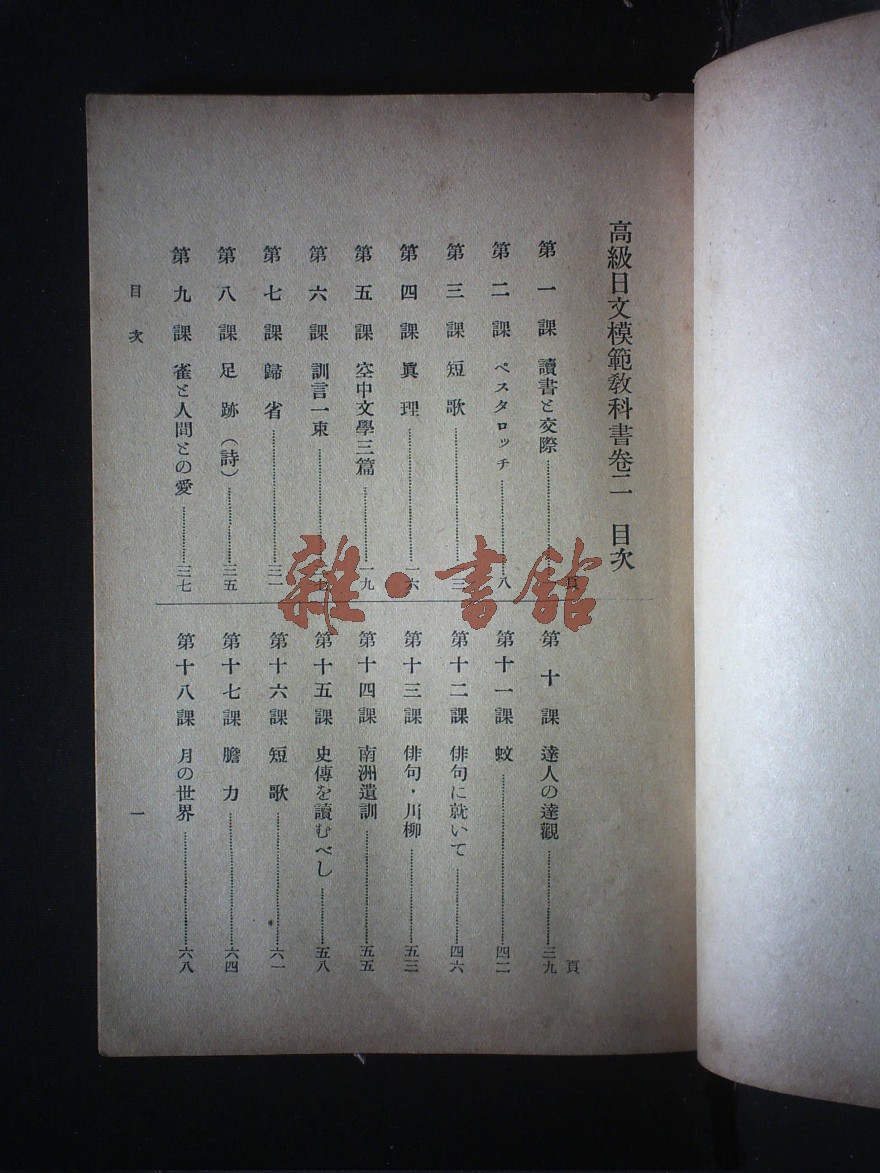 高級日文模範教科書卷二　目次
頁
第一課　讀書と交際
第二課　ペスタロッチ……八
第三課　短歌……一三
第四課　眞理……一六
第五課　空中文學三篇……一九
第六課　訓言一束
第七課　歸省……三一
第八課　足跡（詩）……三五
第九課　雀と人間との愛……三七
頁
第十課　達人の達觀……三九
第十一課　蚊……四二
第十二課　俳句に就いて……四六
第十三課　俳句・川柳……五三
第十四課　南洲遺訓……五五
第十五課　史傳を讀むべし……五八
第十六課　短歌……六一
第十七課　膽力……六四
第十八課　月の世界……六八
目次
一
雜・書館